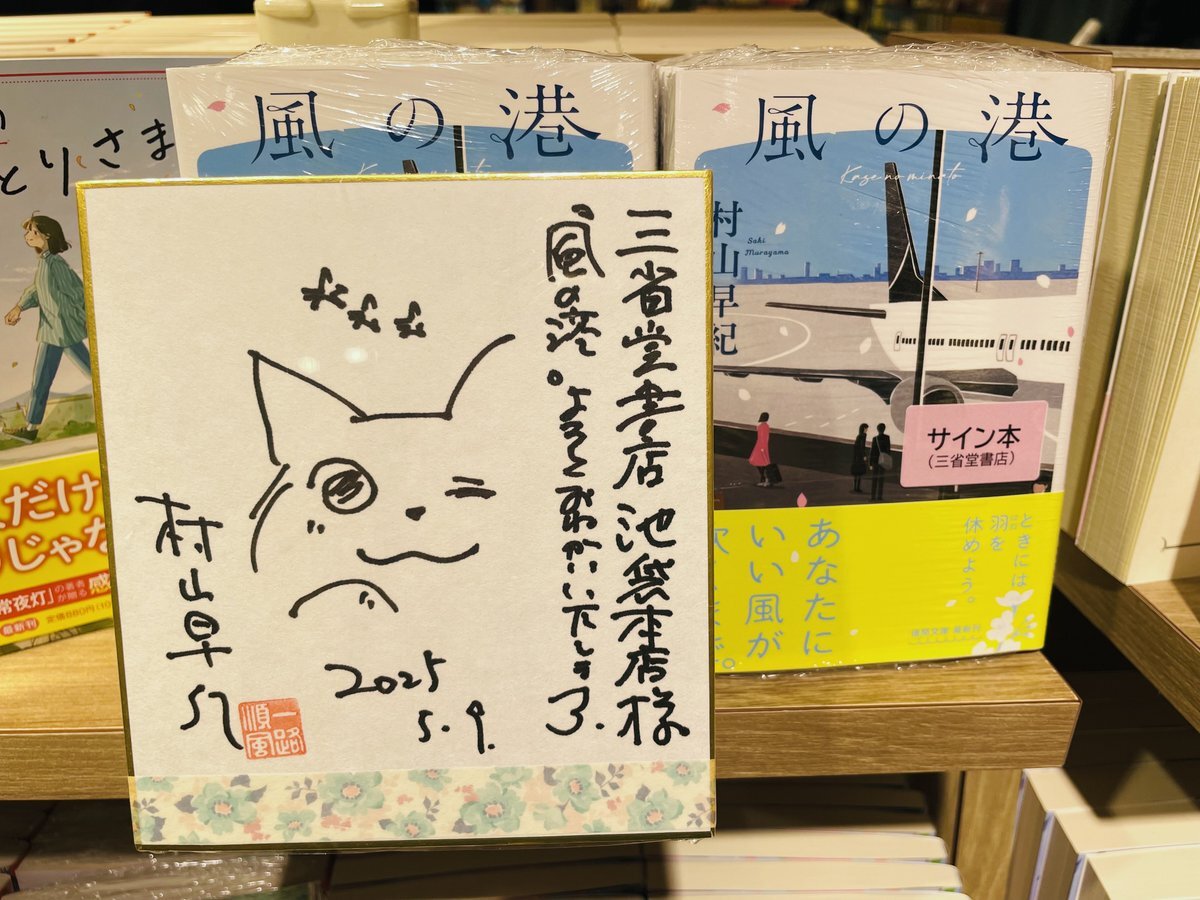 三省堂書店 池袋本店様
風の港。よろしくおねがいいたします。
村山早紀
2025
5.9.
一路
順風
風の港
風の港
Kaze no minato
村山早紀
Saki
Murayama
サイン本
(三省堂書店)
ときには
羽を
休めよう。
あなたに
いい風が
徳間文庫 最新刊
とりさま
だけ
じゃな
常夜灯」の著者
が贈る
感
最新刊
定価880円